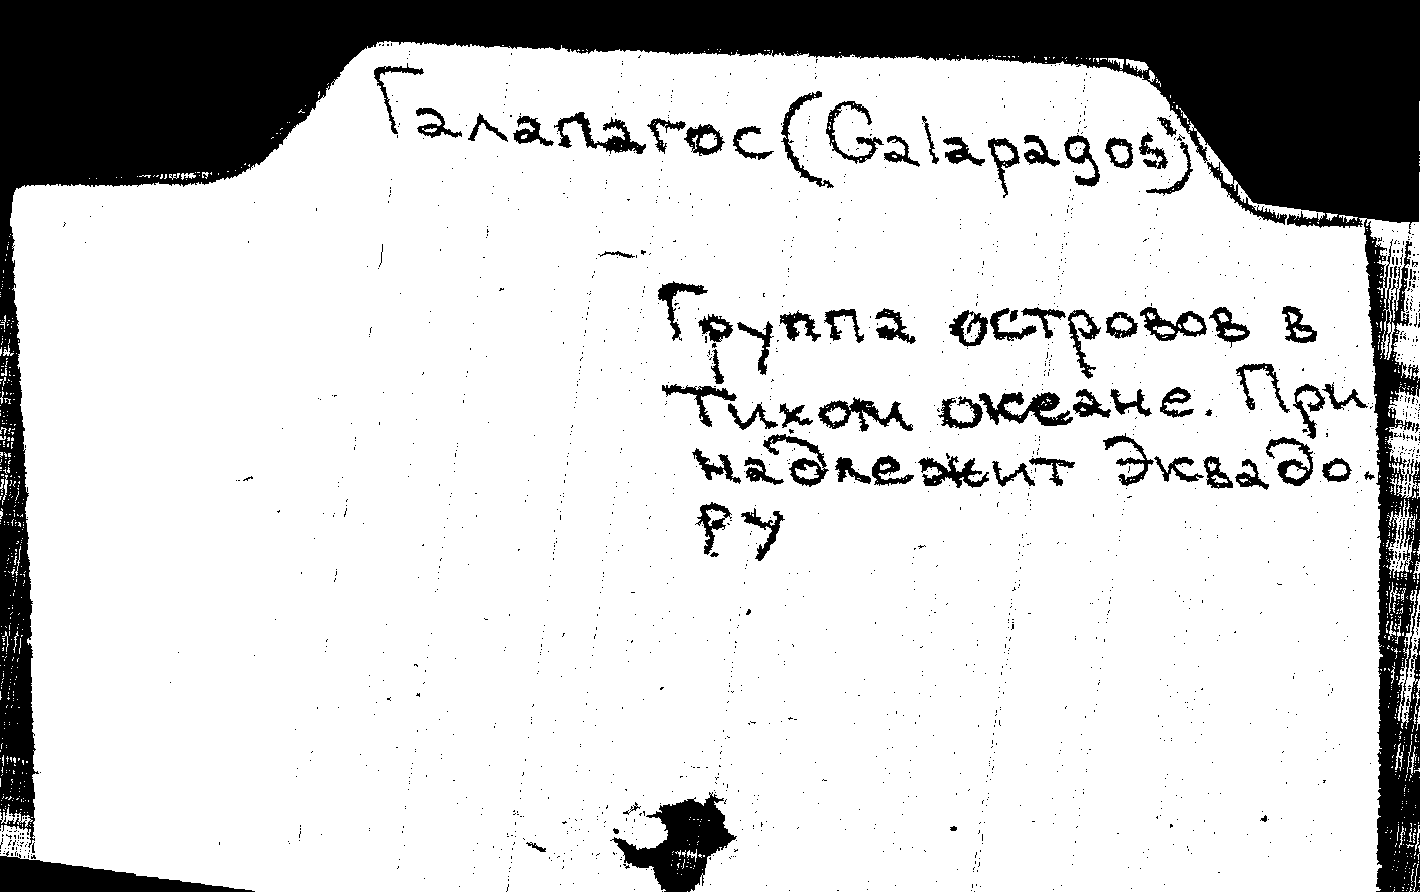 Галапагос (Galapagos)
Группа островов в
Тихом океане. При
надлежит Эквадо-
ру